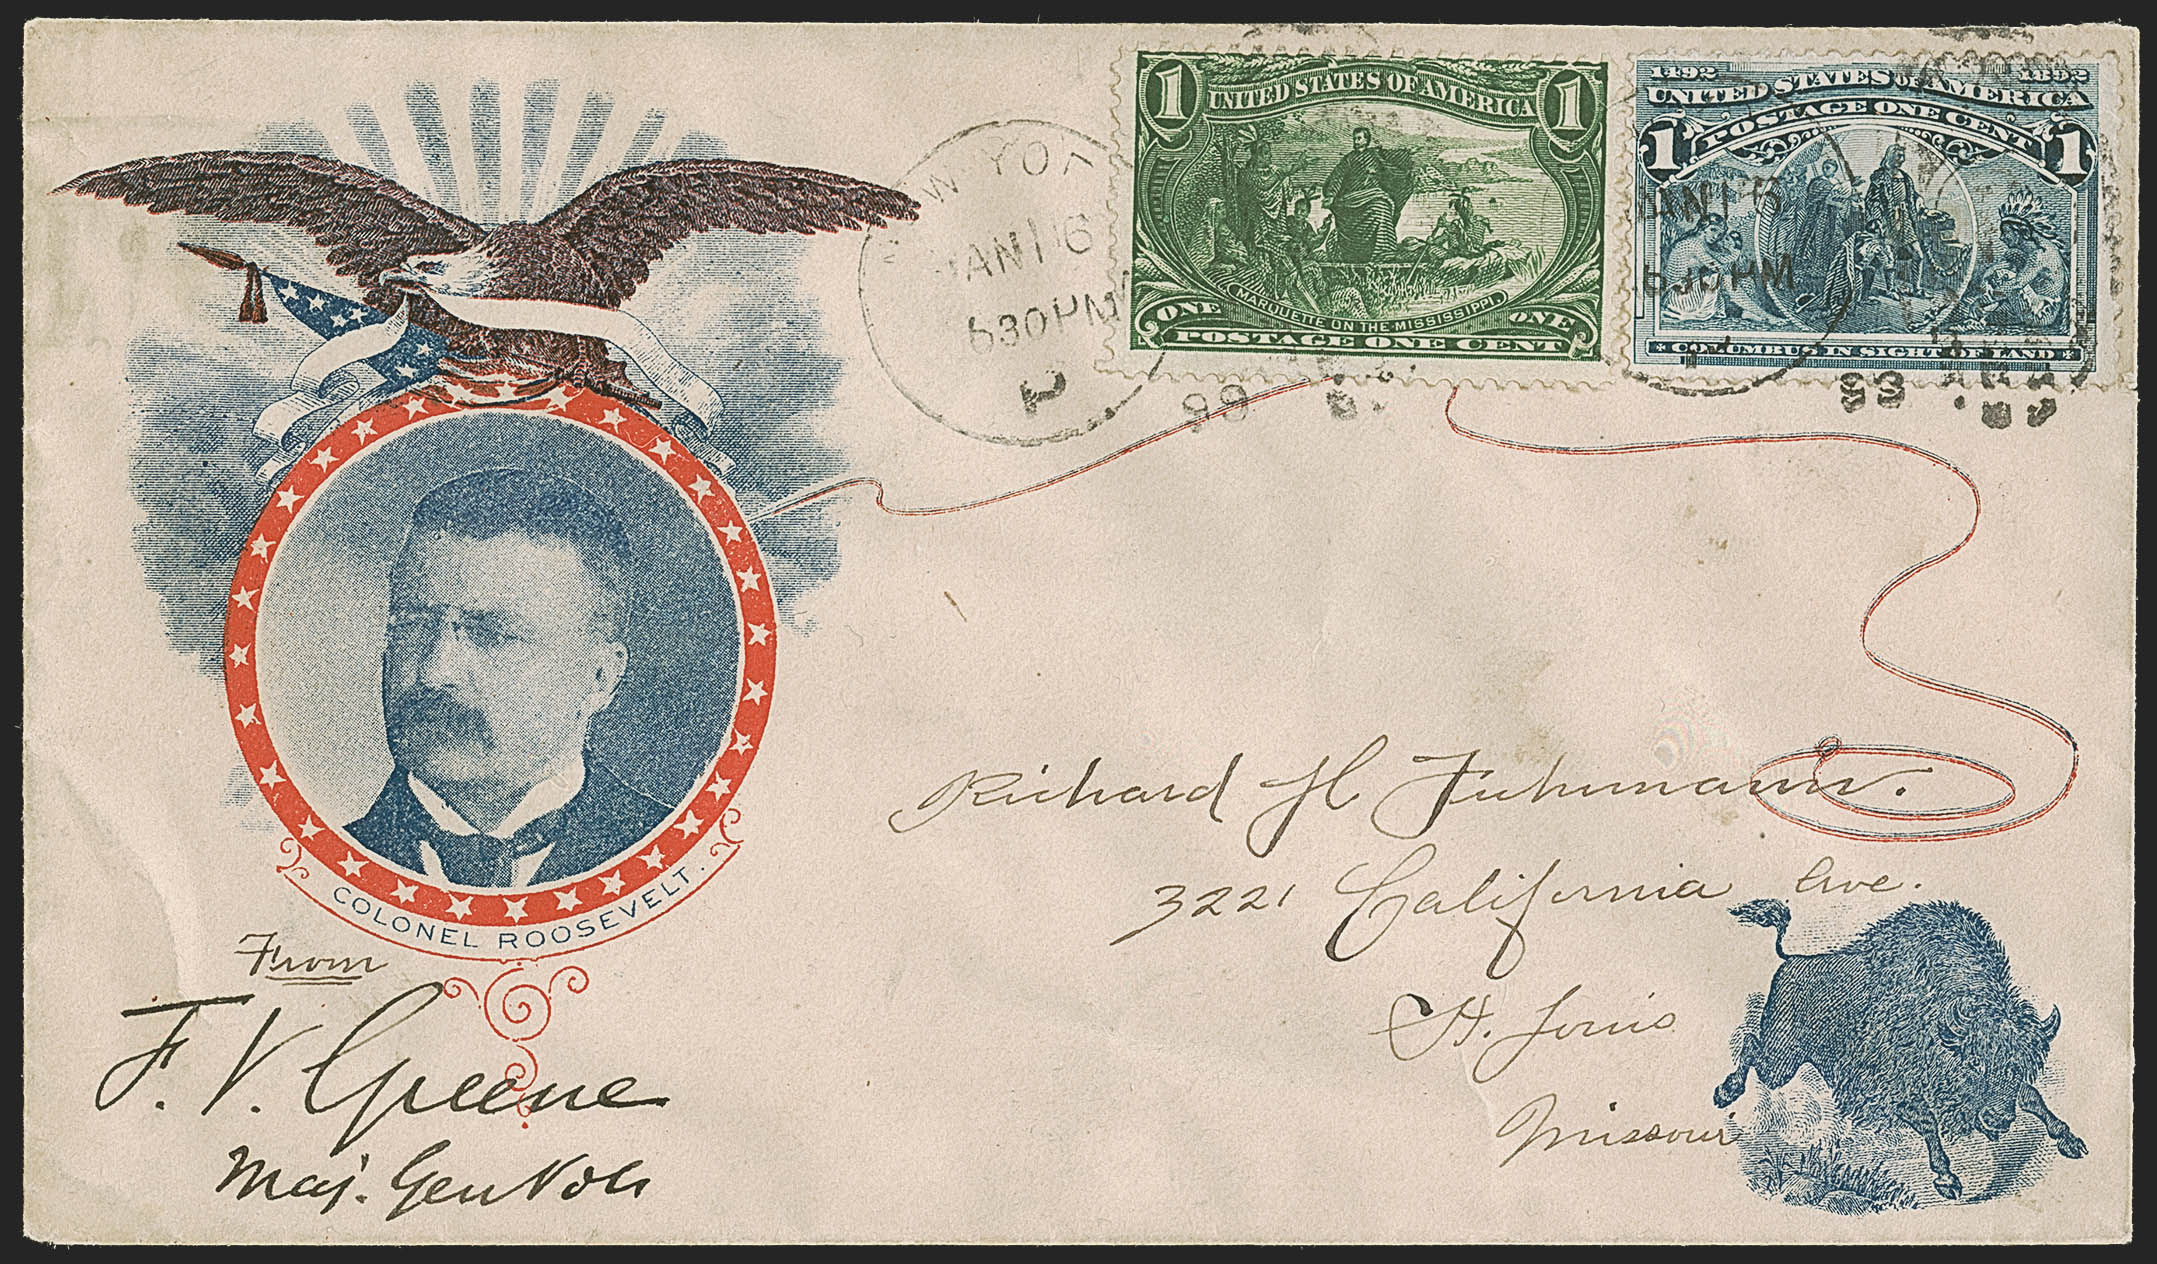 1 UNITED STATES OF AMERICA 1
MARQUETTE ON THE MISSISSIPPI
ONE ONE
POSTAGE ONE CENT
1492 1892
UNITED STATES OF AMERICA
POSTAGE ONE CENT
1 1
COLUMBUS IN SIGHT OF LAND
W YO
JAN 16
630 PM
99
JAN 16
630 PM
99
COLONEL ROOSEVELT.
Richard H Fuhrmann.
3221 California Ave.
St. Louis
Missouri
From
F. V. Greene
Maj. Gen Vols